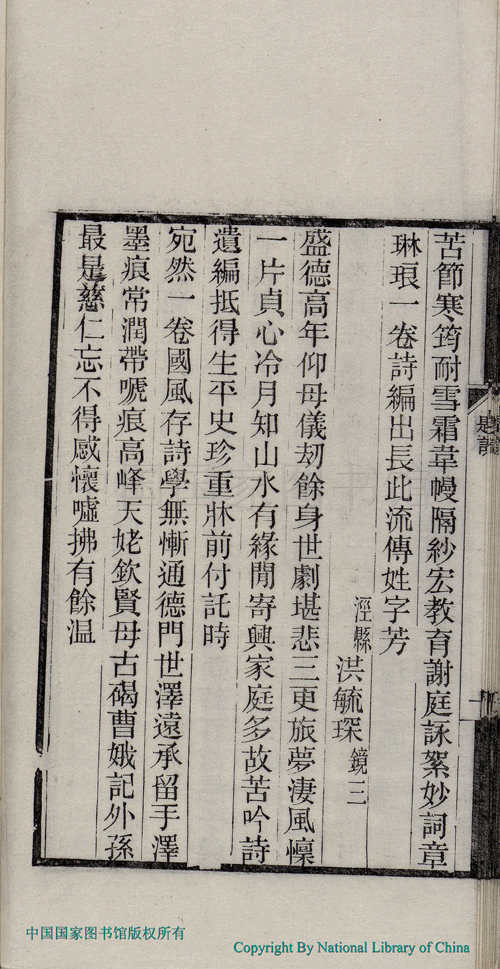 苦節寒筠耐雪霜韋幔隔紗宏教育謝庭詠絮妙詞章
琳琅一卷詩編出長此流傳姓字芳
涇縣 洪毓琛 鏡三
盛德高年仰母儀刧餘身世劇堪悲三更旅夢淒風懔
一片貞心冷月知山水有緣閒寄興家庭多故苦吟詩
遺編抵得生平史珍重牀前付託時
宛然一卷國風存詩學無慚通德門世澤遠承留手澤
墨痕常潤帶唬痕高峰天姥欽賢母古碣曹娥記外孫
最是慈仁忘不得感懷噓拂有餘温
中国国家图书馆版权所有
Copyright By National Library of China